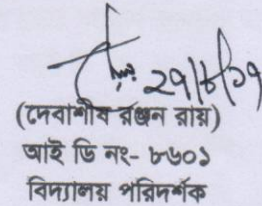 ২৭/৮/১৭
(দেবাশীষ রঞ্জন রায়)
আই ডি নং- ৮৬০১
বিদ্যালয় পরিদর্শক